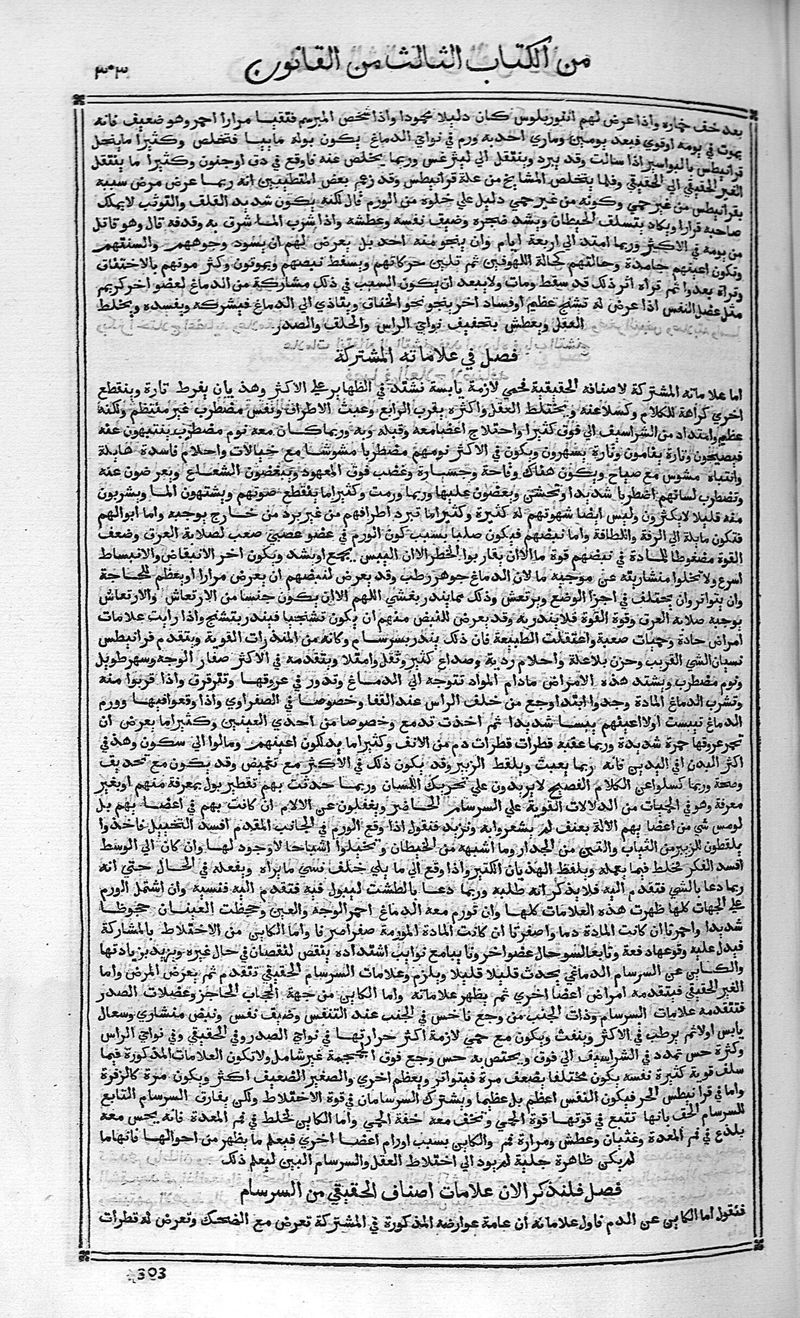 من الكتاب الثالث من القانون
٣٠٣
بعد خف خماره واذا عرض لهم انفوربلوس كان دليلا محمودا واذا شخص المبرسم فتقيا مرارا احمر وهو ضعيف فانه
يموت في يومه اوقوي فبعد يومين وماري احد به ورم في نواي الدماغ يكون بوله ماييا فتخلص وكثيرا ما ينحل
قرانيطس بالبواسير اذا سالت وقد يبرد وينتقل الي ليثرغس وربما يخلص عنه فاوقع في دق اوجنون وكثيرا ما ينتقل
الغير الحقيقي الي الحقيقي وقلما يتخلص المشايخ من علة قرانيطس وقد زعم بعض المتطببين انه ربما عرض مرض شبيه
بقرانيطس من غير حمي وكونه من غير حمي دليل علي خلوه من الورم قال لكنه يكون شديد القلق والتوثب لا يملك
صاحبه قرارا ويكاد يتسلف الحيطان ويشتد ضجره وضيق نفسه وعطشه واذا شرب الماء شرق به وقدفه قال وهو قاتل
من يومه في الاكثر وربما امتد الي اربعة ايام وان ينجو منه احد بل يعرض لهم ان يسود وجوههم والسنتهم
وتكون اعينهم جامدة وحالتهم كحالة الملهوفين ثم تلين حركاتهم ويسقط نبضهم ويموتون وكثر موتهم بالاختناق
وتراه يعدوا ثم تراه اثر ذلك قد سقط ومات ولا يبعد ان يكون السبب في ذلك مشاركة من الدماغ لعضو اخر كريم
مثل عضل النفس اذا عرض له تشنج عظيم اوفساد اخر ينحو نحو الخناق ويتاذي الي الدماغ فيشركه ويفسده ويخلط
العقل ويعطش بتجفيف نواي الراس والحلق والصدر
فصل في علاماته المشتركة
اما علاماته المشتركة لاصنافه الحقيقية فحمي لازمة يابسة تشتد في الظهاير علي الاكثر وهذيان يفرط تارة وينقطع
اخري كراهة للكلام وكسلا عنه ويختلط العقل واكثره بقرب الرابع وعبث الاطراف ونفس مضطرب غير منتظم ولكنه
عظيم وامتداد من الشراسيف الي فوق كثيرا واختلاج اعضا معه وقبله وبه وربما كان معه نوم مضطرب ينتبهون عنه
فيصيحون وتارة ينامون وتارة يسهرون ويكون في الاكثر نومهم مضطربا مشوشا مع خيالات واحلام فاسدة هايلة
وانتباه مشوس مع صياح ويكون هناك وقاحة وجسارة وغضب فوق المعهود ويبغضون الشعاع ويعرضون عنه
وتضطرب لسانهم اضطرابا شديدا وتخشن ويعضون عليها وربما ورمت وكثيرا ما ينقطع صوتهم ويشتهون الما ويشربون
منه قليلا لايكثرون وليس ايضا شهوتهم له كثيرة وكثيرا ما تبرد اطرافهم من غير برد من خارج يوجبه واما ابوالهم
فتكون مايلة الي الرقة واللطافة واما نبضهم فيكون صلبا بسبب كون الورم في عضو عصبي صعب لصلابة العرق وضعف
القوة مضغوطا للمادة في نبضهم قوة ما الا ان يقاربوا الخطر لان اليبس يجمع اويشد ويكون اخر الانقباض والانبساط
اسرع ولا تخلوا منشاريته عن موجيه ما لان الدماغ جوهر رطب وقد يعرض لنبضهم ان يعرض مرارا اويعظم للحاجة
وان يتواتر وان يختلف في اجزا الوضع ويرتعش وذلك مما ينذر بغشي اللهم الا ان يكون جنسا من الارتعاش والارتعاش
يوجبه صلابة العرق وقوة القوة فلا ينذر به وقد يعرض للنبض منهم ان يكون تشنجيا فينذر بتشنج واذا رايت علامات
امراض حادة وحميات صعبة واعتقلت الطبيعة فان ذلك ينذر بسرسام وكانه من المنذرات القوية ويتقدم قرانيطس
نسيان الشي القريب وحزن بلا علة واحلام ردية وصداع كثير وثقل وامتلا ويتقدمه في الاكثر صفار الوجه وسهر طويل
ونوم مضطرب ويشتد هذه الامراض مادام المواد تتوجه الي الدماغ وتدور في عروقها وترقرق واذا قربوا منه
وتشرب الدماغ المادة وجدوا ابتدا وجع من خلف الراس عند القفا وخصوصا في الصفراوي واذا وقعوا فيها وورم
الدماغ تيبست اولا اعينهم يبسا شديدا ثم اخذت تدمع وخصوصا من احدي العينين وكثيرا ما يعرض ان
تحمر عروقها حمرة شديدة وربما عقبه قطرات قطرات دم من الانف وكثيرا ما يدلكون اعينهم ومالوا الي سكون وهدي في
اكثر البدن الي اليدين فانه ربما يعبث ويلقط الزيبر وقد يكون ذلك في الاكثر مع تغميض وقد يكون مع تحديق
وصحة وربما كسلوا عن الكلام الفصيح لايزيدون علي تحريك اللسان وربما حدثت بهم تقطير بول بمعرفة منهم اوبغير
معرفة وهو في الحميات من الدلالات القوية علي السرسام الحاضر ويغفلون عن الالام ان كانت بهم في اعضا بهم بل
لومس شي من اعضا بهم الالمة بعنف لم يشعروا به ونزيد فنقول اذا وقع الورم في الجانب المقدم افسد التخييل فاخذوا
يلقطون الزيبر من الثياب والتبن من الجدار وما اشبهه من الحيطان ويتخيلوا اشباحا لاوجود لها وان كان الي الوسط
افسد الفكر فخلط فيما يعمله ويلفظ الهذيان الكثير واذا وقع الي ما يلي خلف نسي مايراه ويفعله في الحال حتي انه
ربما دعا بالشي فتقدم اليه فلا يذكر انه طلبه وربما دعا بالطشت ليبول فيه فتقدم اليه فنسيه وان اشتمل الورم
علي الجهات كلها ظهرت هذه العلامات كلها وان تورم معه الدماغ احمر الوجه والعين وجحظت العينان جحوظا
شديدا واحمرتا ان كانت المادة دما واصفرتا ان كانت المادة المورمة صفرا صرفا واما الكاين من الاختلاط بالمشاركة
فيدل عليه وقوعها دفعة وتابعا لسو حال عضو اخر وتابيا مع نوايب اشتداده ينقص لنقصان في حال غيره ويزيد بزيادتها
والكاين عن السرسام الدماغي يحدث قليلا قليلا ويلزم وعلامات السرسام الحقيقي تتقدم ثم يعرض المرض واما
الغير الحقيقي فيتقدمه امراض اعضا اخري ثم يظهر علاماته واما الكاين من جهة الحجاب الحاجز وعضلات الصدر
فتتقدمه علامات السرسام وذات الجنب من وجع ناخس في الجنب عند التنفس وضيق نفس ونبض منشاري وسعال
يابس اولا ثم يرطب في الاكثر وينفث ويكون مع حمي لازمة اكثر حرارتها في نواي الصدر وفي الحقيقي وفي نواي الراس
وكثرة حس تمدد في الشراسيف الي فوق ويختص به حس وجع فوق الجمجمة غير شامل ولا تكون العلامات المذكورة فيما
سلف قوية كثيرة نفسه يكون مختلفا يضعف مرة فيتواتر ويعظم اخري والصغير الضعيف اكثر ويكون مرة كالزفرة
واما في قرانيطس الحر فيكون النفس اعظم بل عظيما ويشترك السرسامان في قوة الاختلاط ولكن يفارق السرسام التابع
للسرسام الحق بانها تتبع في قوتها قوة الحمي وتخف معه خفة الحمي واما الكاين لخلط في فم المعدة فانه يحس معه
بلذع في فم المعدة وغثيان وعطش ومرارة فم والكاين بسبب اورام اعضا اخري فيعلم ما يظهر من احوالها فانها ما
لم يكن ظاهرة جلية لم يود الي اختلاط العقل والسرسام البين ليعلم ذلك
فصل فلنذكر الان علامات اصناف الحقيقي من السرسام
فنقول اما الكاين عن الدم فاول علاماته ان عامة عوارضه المذكورة في المشتركة تعرض مع الضحك وتعرض له قطرات
303